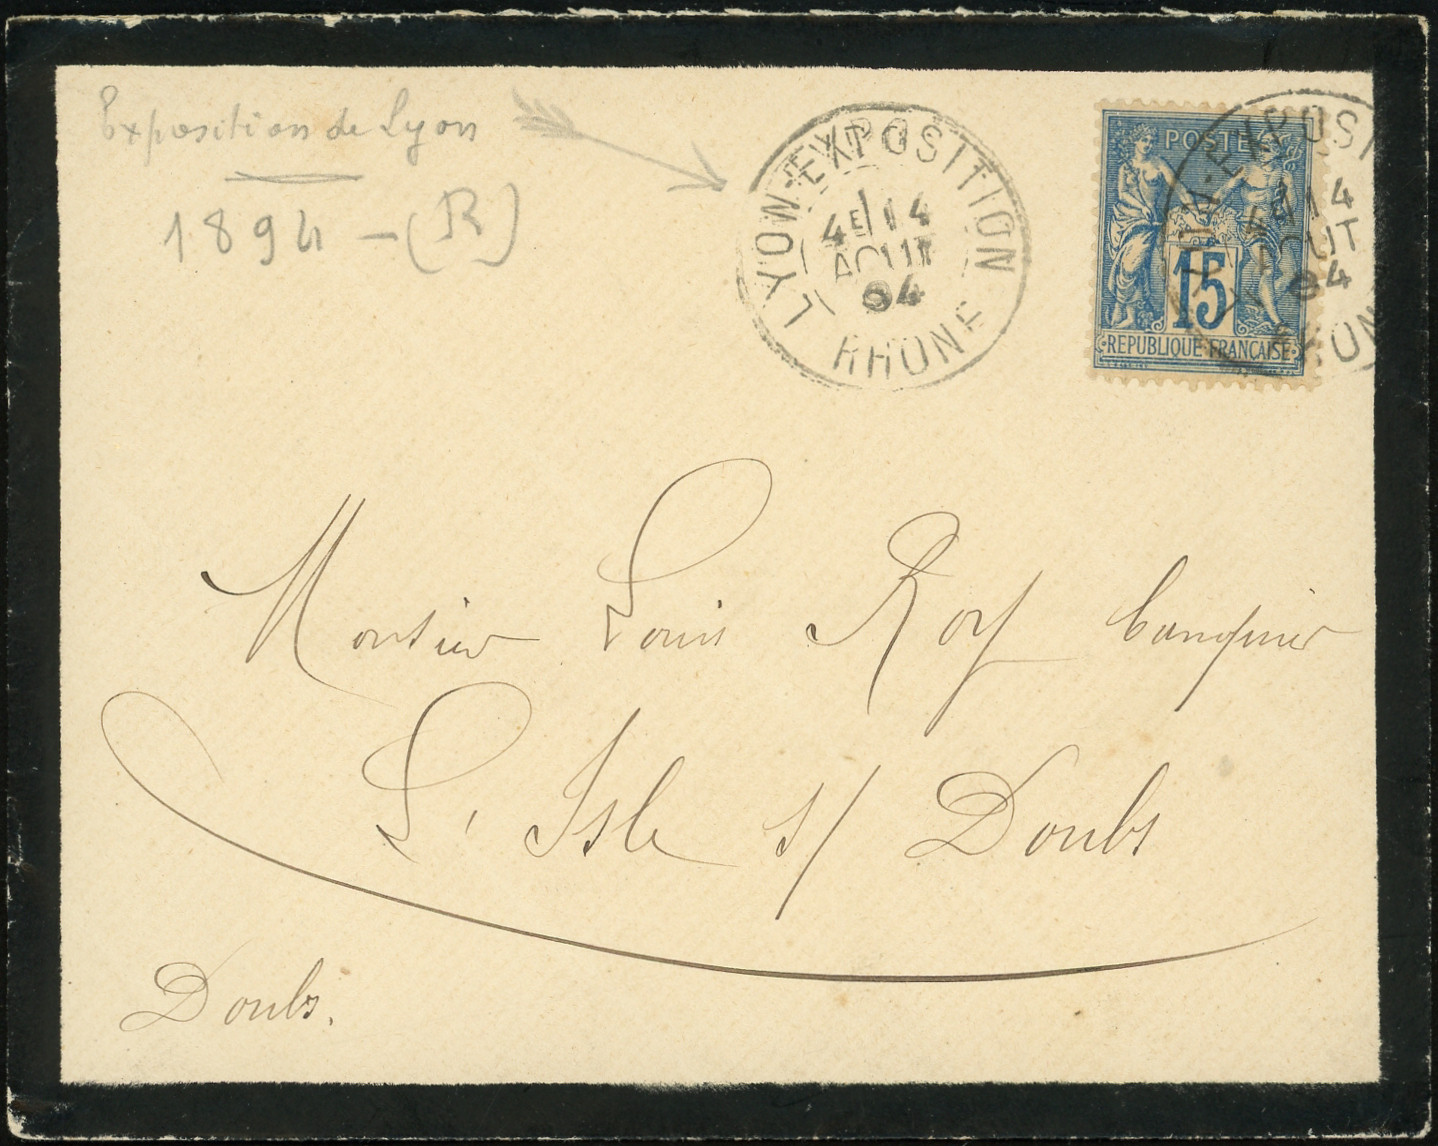 Exposition de Lyon
1894 - (R)
LYON-EXPOSITION
4E 14
AOUT
94
RHONE
POSTES
15
REPUBLIQUE FRANÇAISE
LYON-EXPOSITI
4E 14
AOUT
94
RHON
Monsieur Louis Roy banquier
L'Isle s/ Doubs
Doubs.